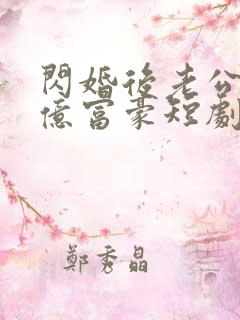 閃婚後老公
億富豪短劇
鄭秀晶